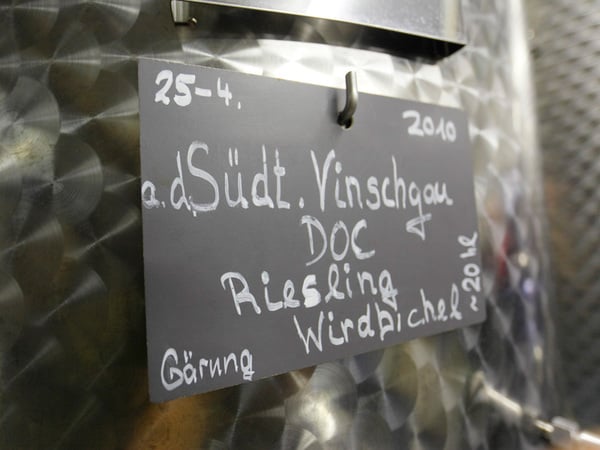 25-4.
2010
a.d. Südt. Vinschgau
DOC
Riesling
Windbichel
~20 hl
Gärung